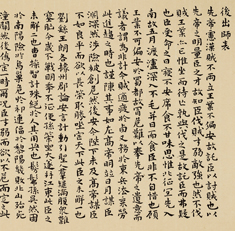 後出師表
先帝慮漢賊不兩立王業不偏安故託臣以討賊也以
先帝之明量臣之才故知臣伐賊才弱敵強也然不伐
賊王業亦亡惟坐而待亡孰與伐之是故託臣而弗疑
也臣受命之日寢不安席食不甘味思惟北征宜先入
南故五月渡瀘深入不毛并日而食臣非不自惜也顧
王業不可偏安於蜀都故冒危難以奉先帝之遺意而
議者謂為非計今賊適疲於西又務於東兵法乘勞
此進趨之時也謹陳其事如左高帝明並日月謀臣
淵深然涉險被創危然後安今陛下未及高帝謀臣
不如良平而欲以長策取勝坐定天下此臣之未解一也
劉繇王朗各據州郡論安言計動引聖人群疑滿腹眾難
塞胸今歲不戰明年不征使孫策坐大遂并江東此臣之
未解二也曹操智計殊絕於人其用兵也髣髴孫吳然困
於南陽險於烏巢危於祁連偪於黎陽幾敗北山殆死
潼關然後偽定一時爾況臣才弱而欲以不危而定之